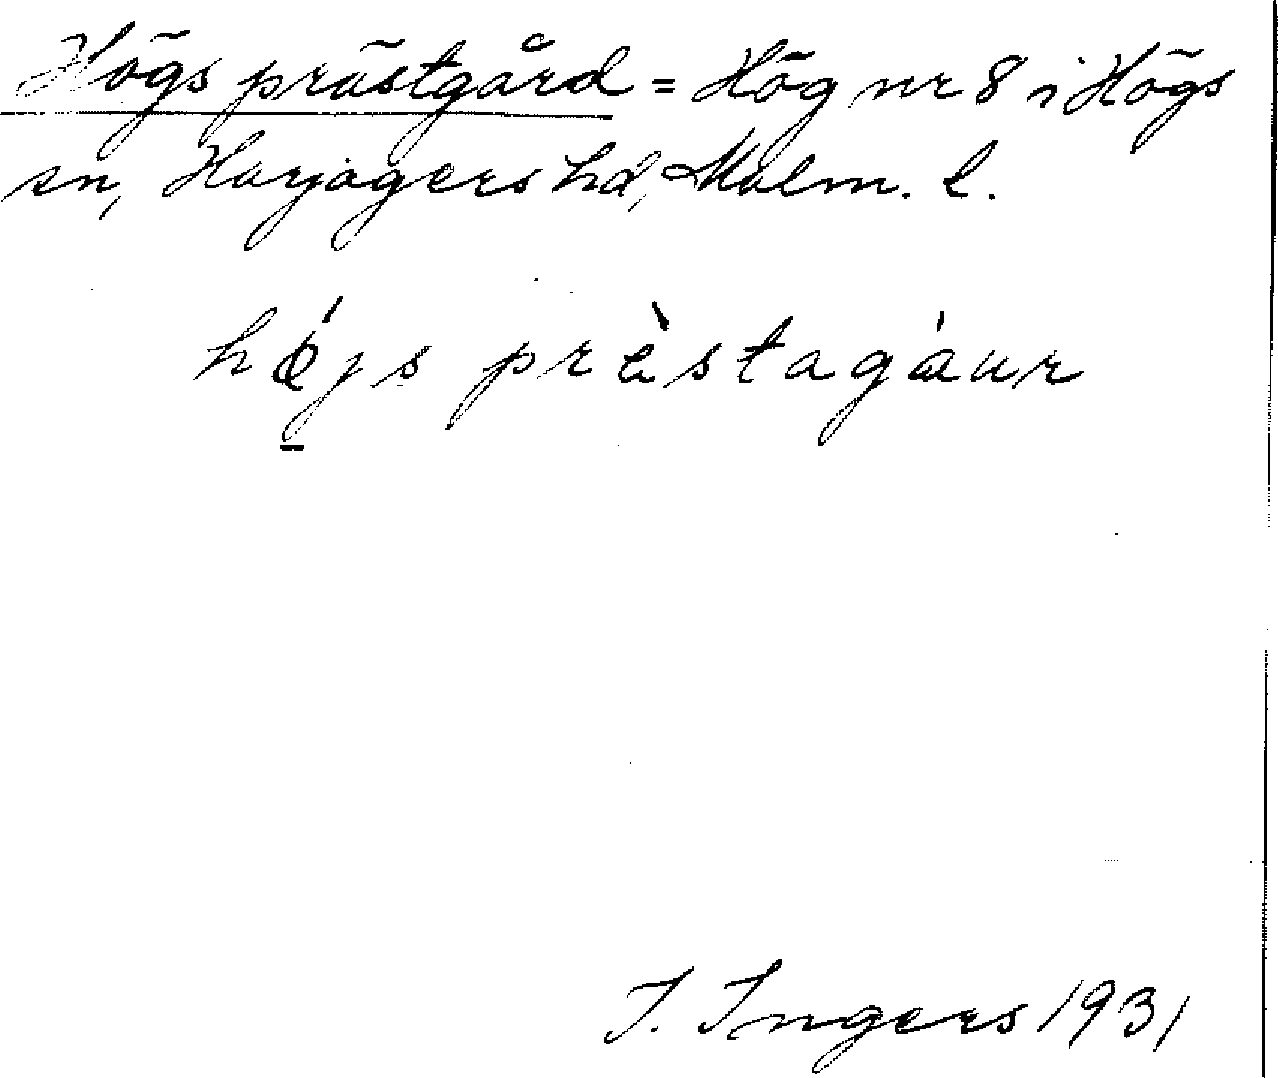 Högs prästgård = Hög nr 8 i Högs
sn, Harjagers hd, Malm. l.
hǿjs prèstagáur
I. Ingers 1931